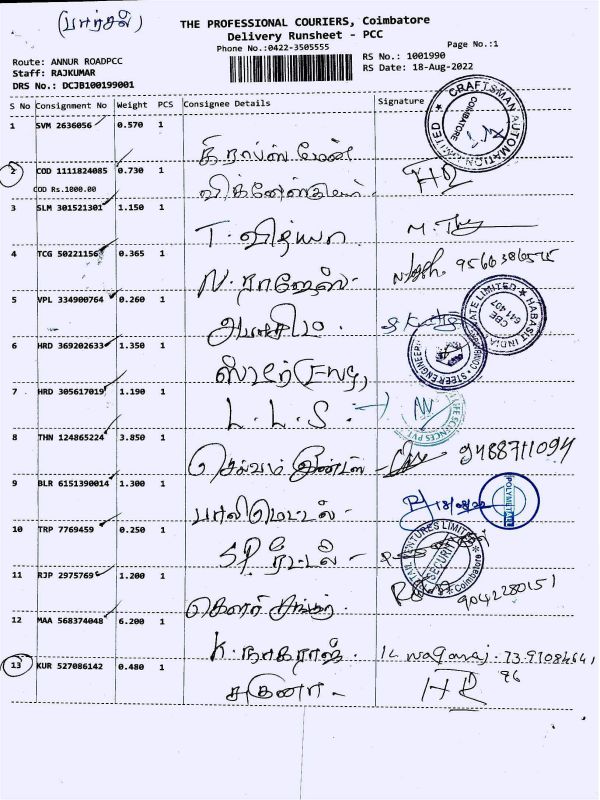 (பார்சல்)
THE PROFESSIONAL COURIERS, Coimbatore
Delivery Runsheet - PCC
Phone No.:0422-3505555
Page No.:1
Route: ANNUR ROADPCC
RS No.: 1001990
Staff: RAJKUMAR
RS Date: 18-Aug-2022
DRS No.: DCJB100199001
S No Consignment No Weight PCS Consignee Details Signature
1 SVM 2636056 0.570 1
CRAFTSMAN AUTOMATION LIMITED COIMBATORE
2 COD 1111824085 0.730 1 HR
COD Rs.1000.00
3 SLM 301521301 1.150 1
T. வித்யா
4 TCG 50221156 0.365 1 9566386515
N. ராஜேஸ்-
5 VPL 334900764 0.260 1
HABASIT INDIA LIMITED CBE 641 407
6 HRD 369202633 1.350 1
STEER ENGINEERING
ஸ்டீர் (Eng)
7 HRD 305617019 1.190 1
L. L. S.
LIFE SCIENCES PVT.
8 THN 124865224 3.850 1
செல்வம் இண்டஸ் - 9488711094
9 BLR 6151390014 1.300 1
பாலிமெட்டல் 18/08/22
POLYMETAL
10 TRP 7769459 0.250 1
SP ரீடெய்ல் -
RETAIL VENTURES LIMITED SECURITY Coimbatore
11 RJP 2975769 1.200 1
9042280151
12 MAA 568374048 6.200 1
K. நாகராஜ். K nagaraj. 73.9708464,
96
13 KUR 527086142 0.480 1 HR
சுகுணா -